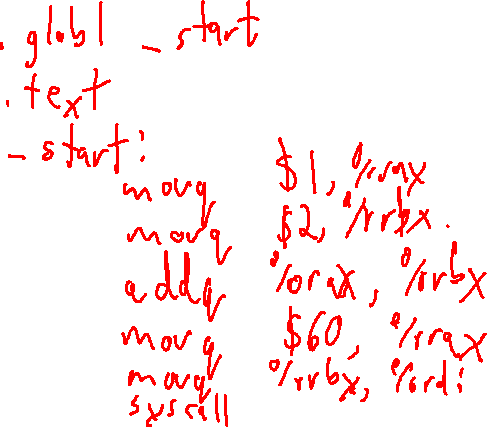 .globl _start
.text
_start:
movq $1, %rax
movq $2, %rbx.
addq %rax, %rbx
movq $60, %rax
movq %rbx, %rdi
syscall